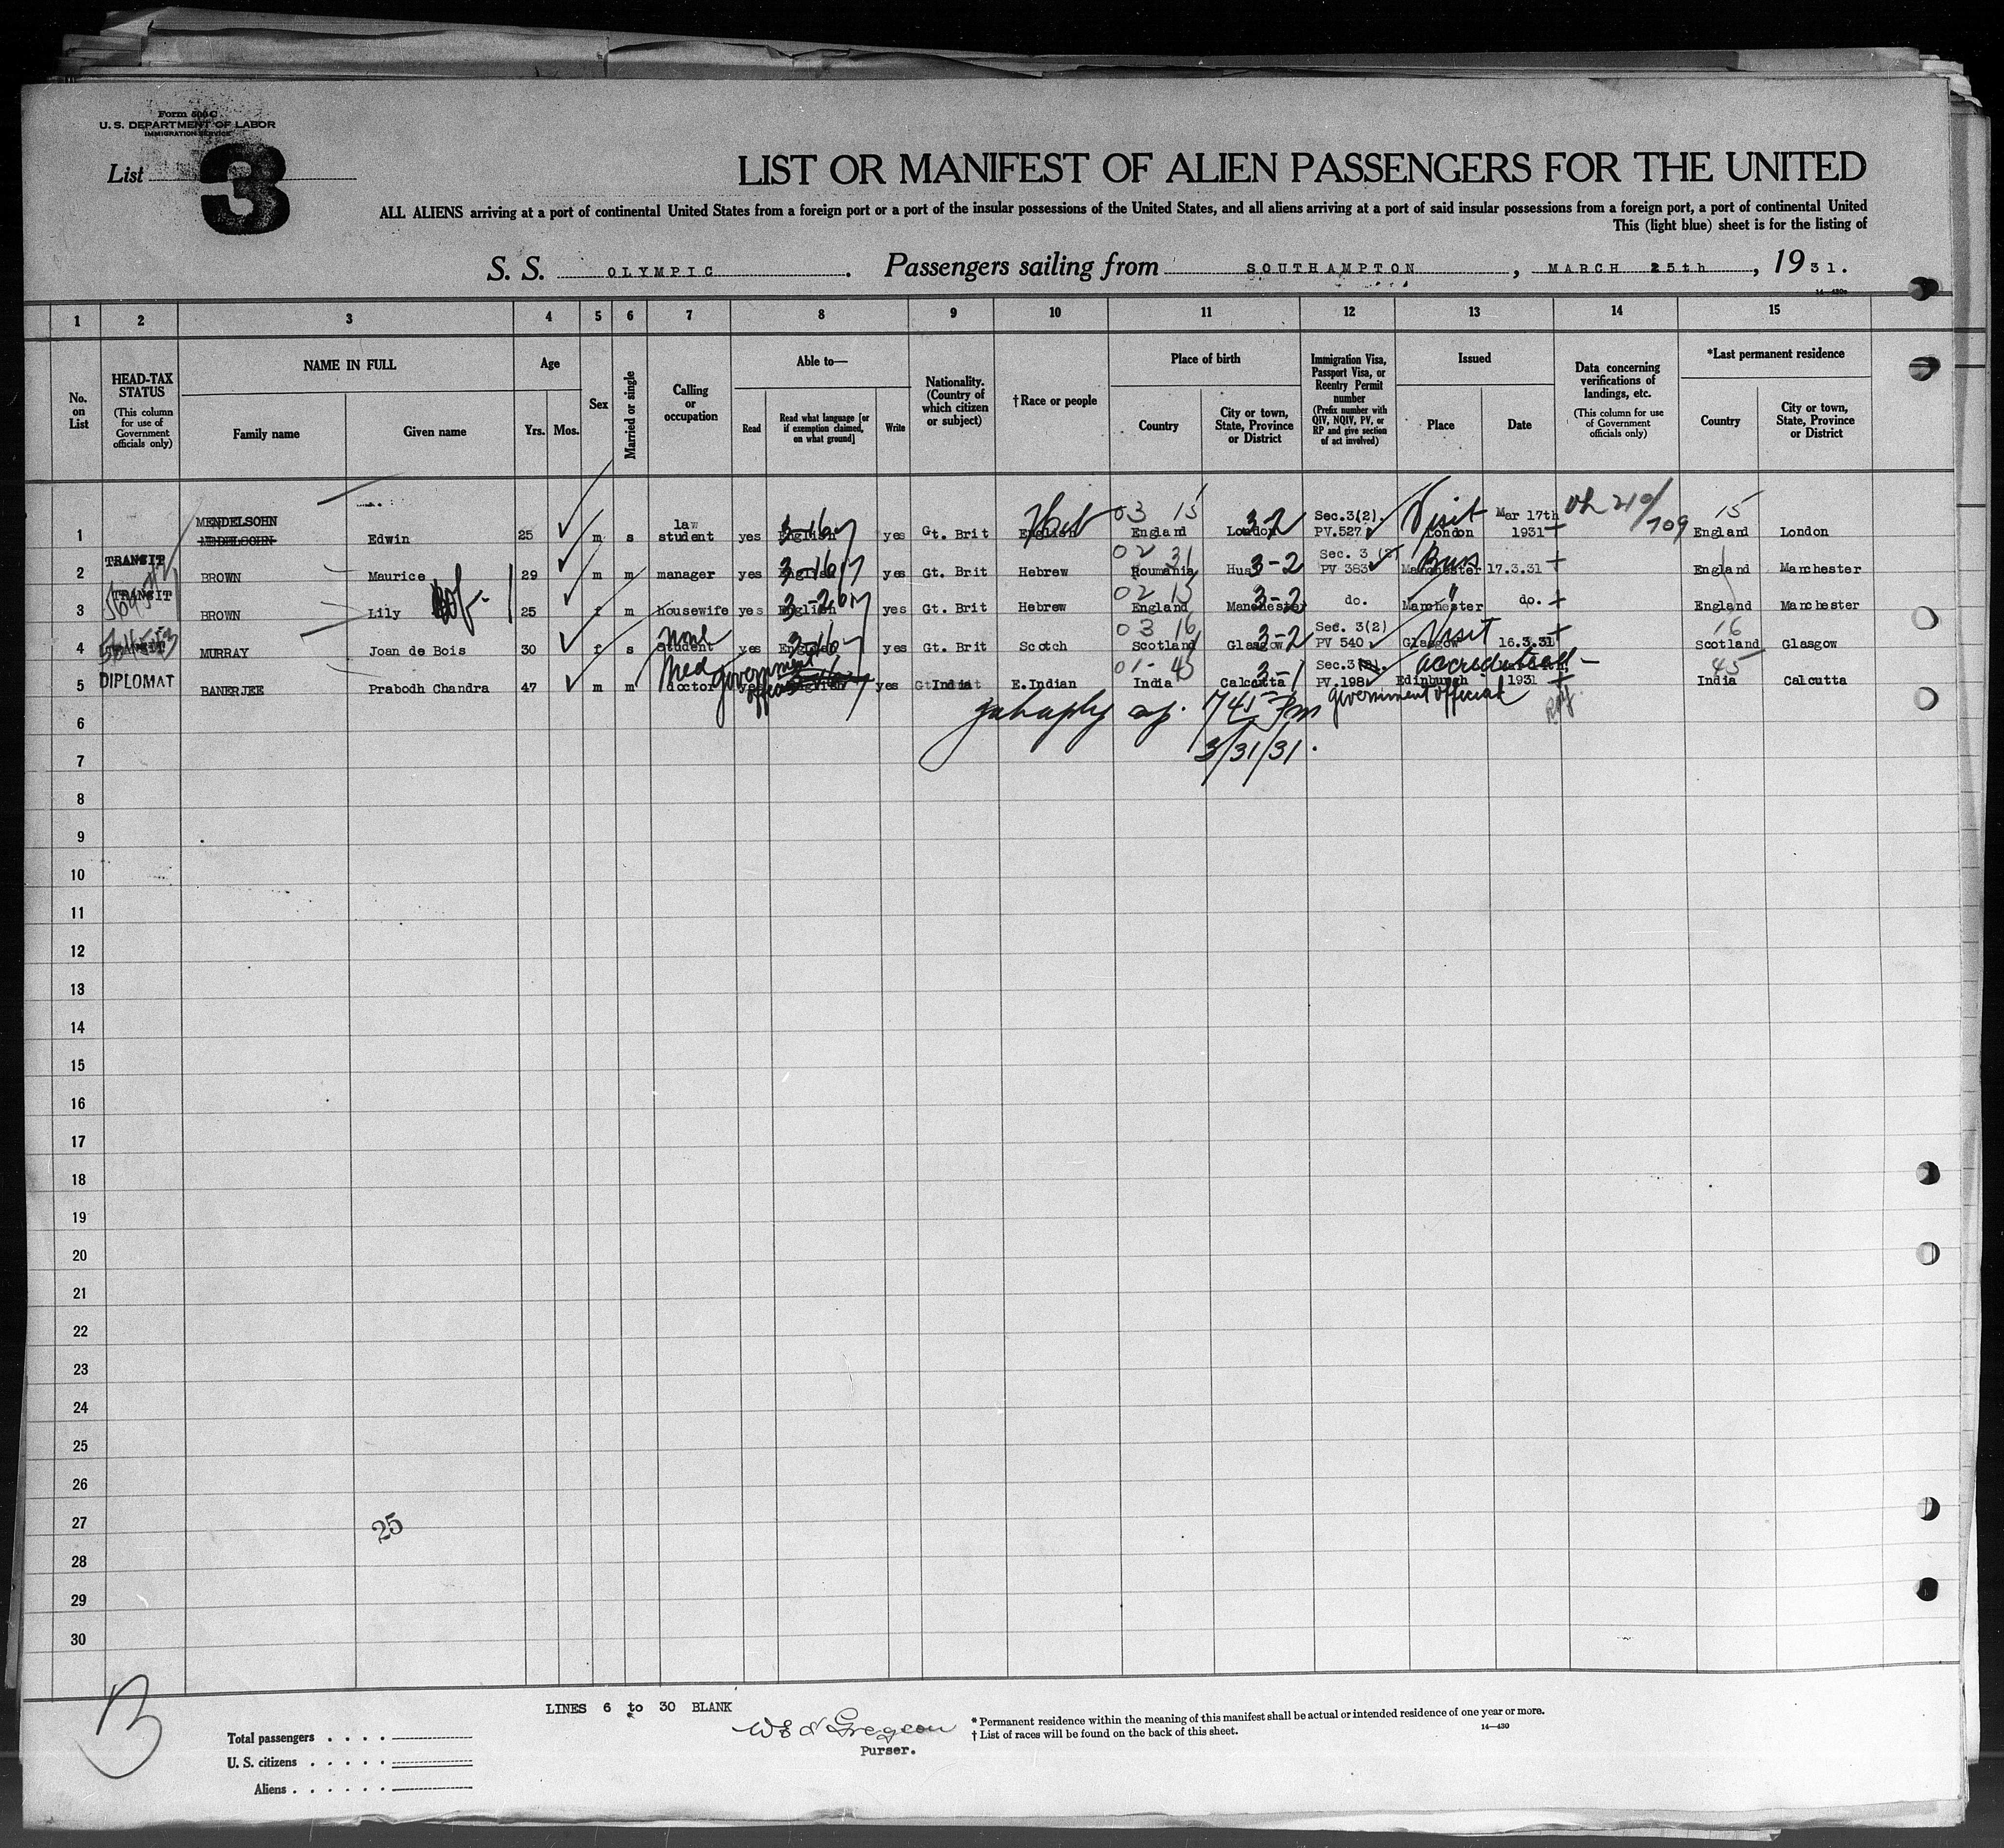 Form 500 C
U. S. DEPARTMENT OF LABOR
IMMIGRATION SERVICE
List 3
LIST OR MANIFEST OF ALIEN PASSENGERS FOR THE UNITED
ALL ALIENS arriving at a port of continental United States from a foreign port or a port of the insular possessions of the United States, and all aliens arriving at a port of said insular possessions from a foreign port, a port of continental United
This (light blue) sheet is for the listing of
S. S. OLYMPIC. Passengers sailing from SOUTHAMPTON, MARCH 25th, 1931.
14—430
1 2 3 4 5 6 7 8 9 10 11 12 13 14 15
No. on List
HEAD-TAX STATUS (This column for use of Government officials only)
NAME IN FULL
Family name Given name
Age
Yrs. Mos.
Sex
Married or single
Calling or occupation
Able to—
Read Read what language [or if exemption claimed, on what ground] Write
Nationality. (Country of which citizen or subject)
†Race or people
Place of birth
Country City or town, State, Province or District
Immigration Visa, Passport Visa, or Reentry Permit number (Prefix number with QIV, NQIV, PV, or RP and give section of act involved)
Issued
Place Date
Data concerning verifications of landings, etc. (This column for use of Government officials only)
*Last permanent residence
Country City or town, State, Province or District
MENDELSOHN law 03 15 3-2 Sec.3(2). Visit Mar 17th 15
1 MENDELSOHN Edwin 25 m s student yes English 3-16 yes Gt. Brit English England London PV.527 London 1931 England London
TRANSIT 02 31 3-2 Sec. 3 (2) Bus
2 BROWN Maurice 29 m m manager yes English 3-16 yes Gt. Brit Hebrew Roumania PV 383 Manchester 17.3.31 England Manchester
TRANSIT 02 15 3-2
3 BROWN Lily 25 f m housewife yes English yes Gt. Brit Hebrew England Manchester do. Manchester " do. England Manchester
TRANSIT none 03 16 3-2 Sec. 3(2) Visit 16
4 MURRAY Joan de Bois 30 f s student yes English 3-16 yes Gt. Brit Scotch Scotland Glasgow PV 540 Glasgow 16.3.31 Scotland Glasgow
DIPLOMAT Med government official 01- 45 3-1 Sec.3(2). accredited 45
5 BANERJEE Prabodh Chandra 47 m m doctor yes English yes India E.Indian India Calcutta PV.198 Edinburgh 1931 India Calcutta
government official
745 Pm
3/31/31.
6
7
8
9
10
11
12
13
14
15
16
17
18
19
20
21
22
23
24
25
26
27 25
28
29
30
LINES 6 to 30 BLANK
Purser.
Total passengers
U. S. citizens
Aliens
* Permanent residence within the meaning of this manifest shall be actual or intended residence of one year or more.
† List of races will be found on the back of this sheet.
14—430